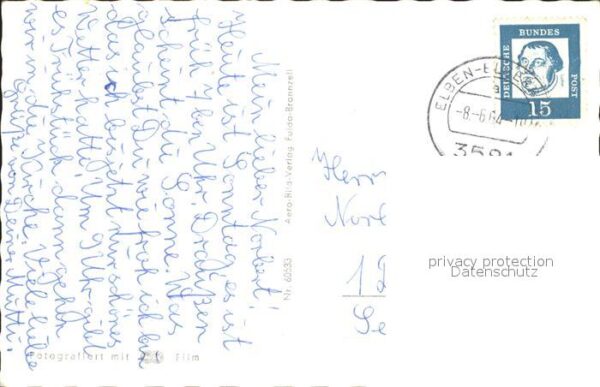 Mein lieber Norbert!
Heute ist Sonntag, es ist
früh 7 ben Uhr. Draußen
scheint die Sonne. Was
glaubst Du wie froh ich bin
das ich bis jetzt nur schönes
Wetter hatte. Um 9 Uhr gibt
es Frühstück, dann gehen
wir in die Kirche. Viele liebe
Grüße von Deiner Mutti.
Aero-Bild-Verlag Fulda-Bronnzell
Nr. 60533
Fotografiert mit Film
Herr
1
DEUTSCHE BUNDES POST
15
ELBEN-EL
-8.-6.64
3501
privacy protection
Datenschutz